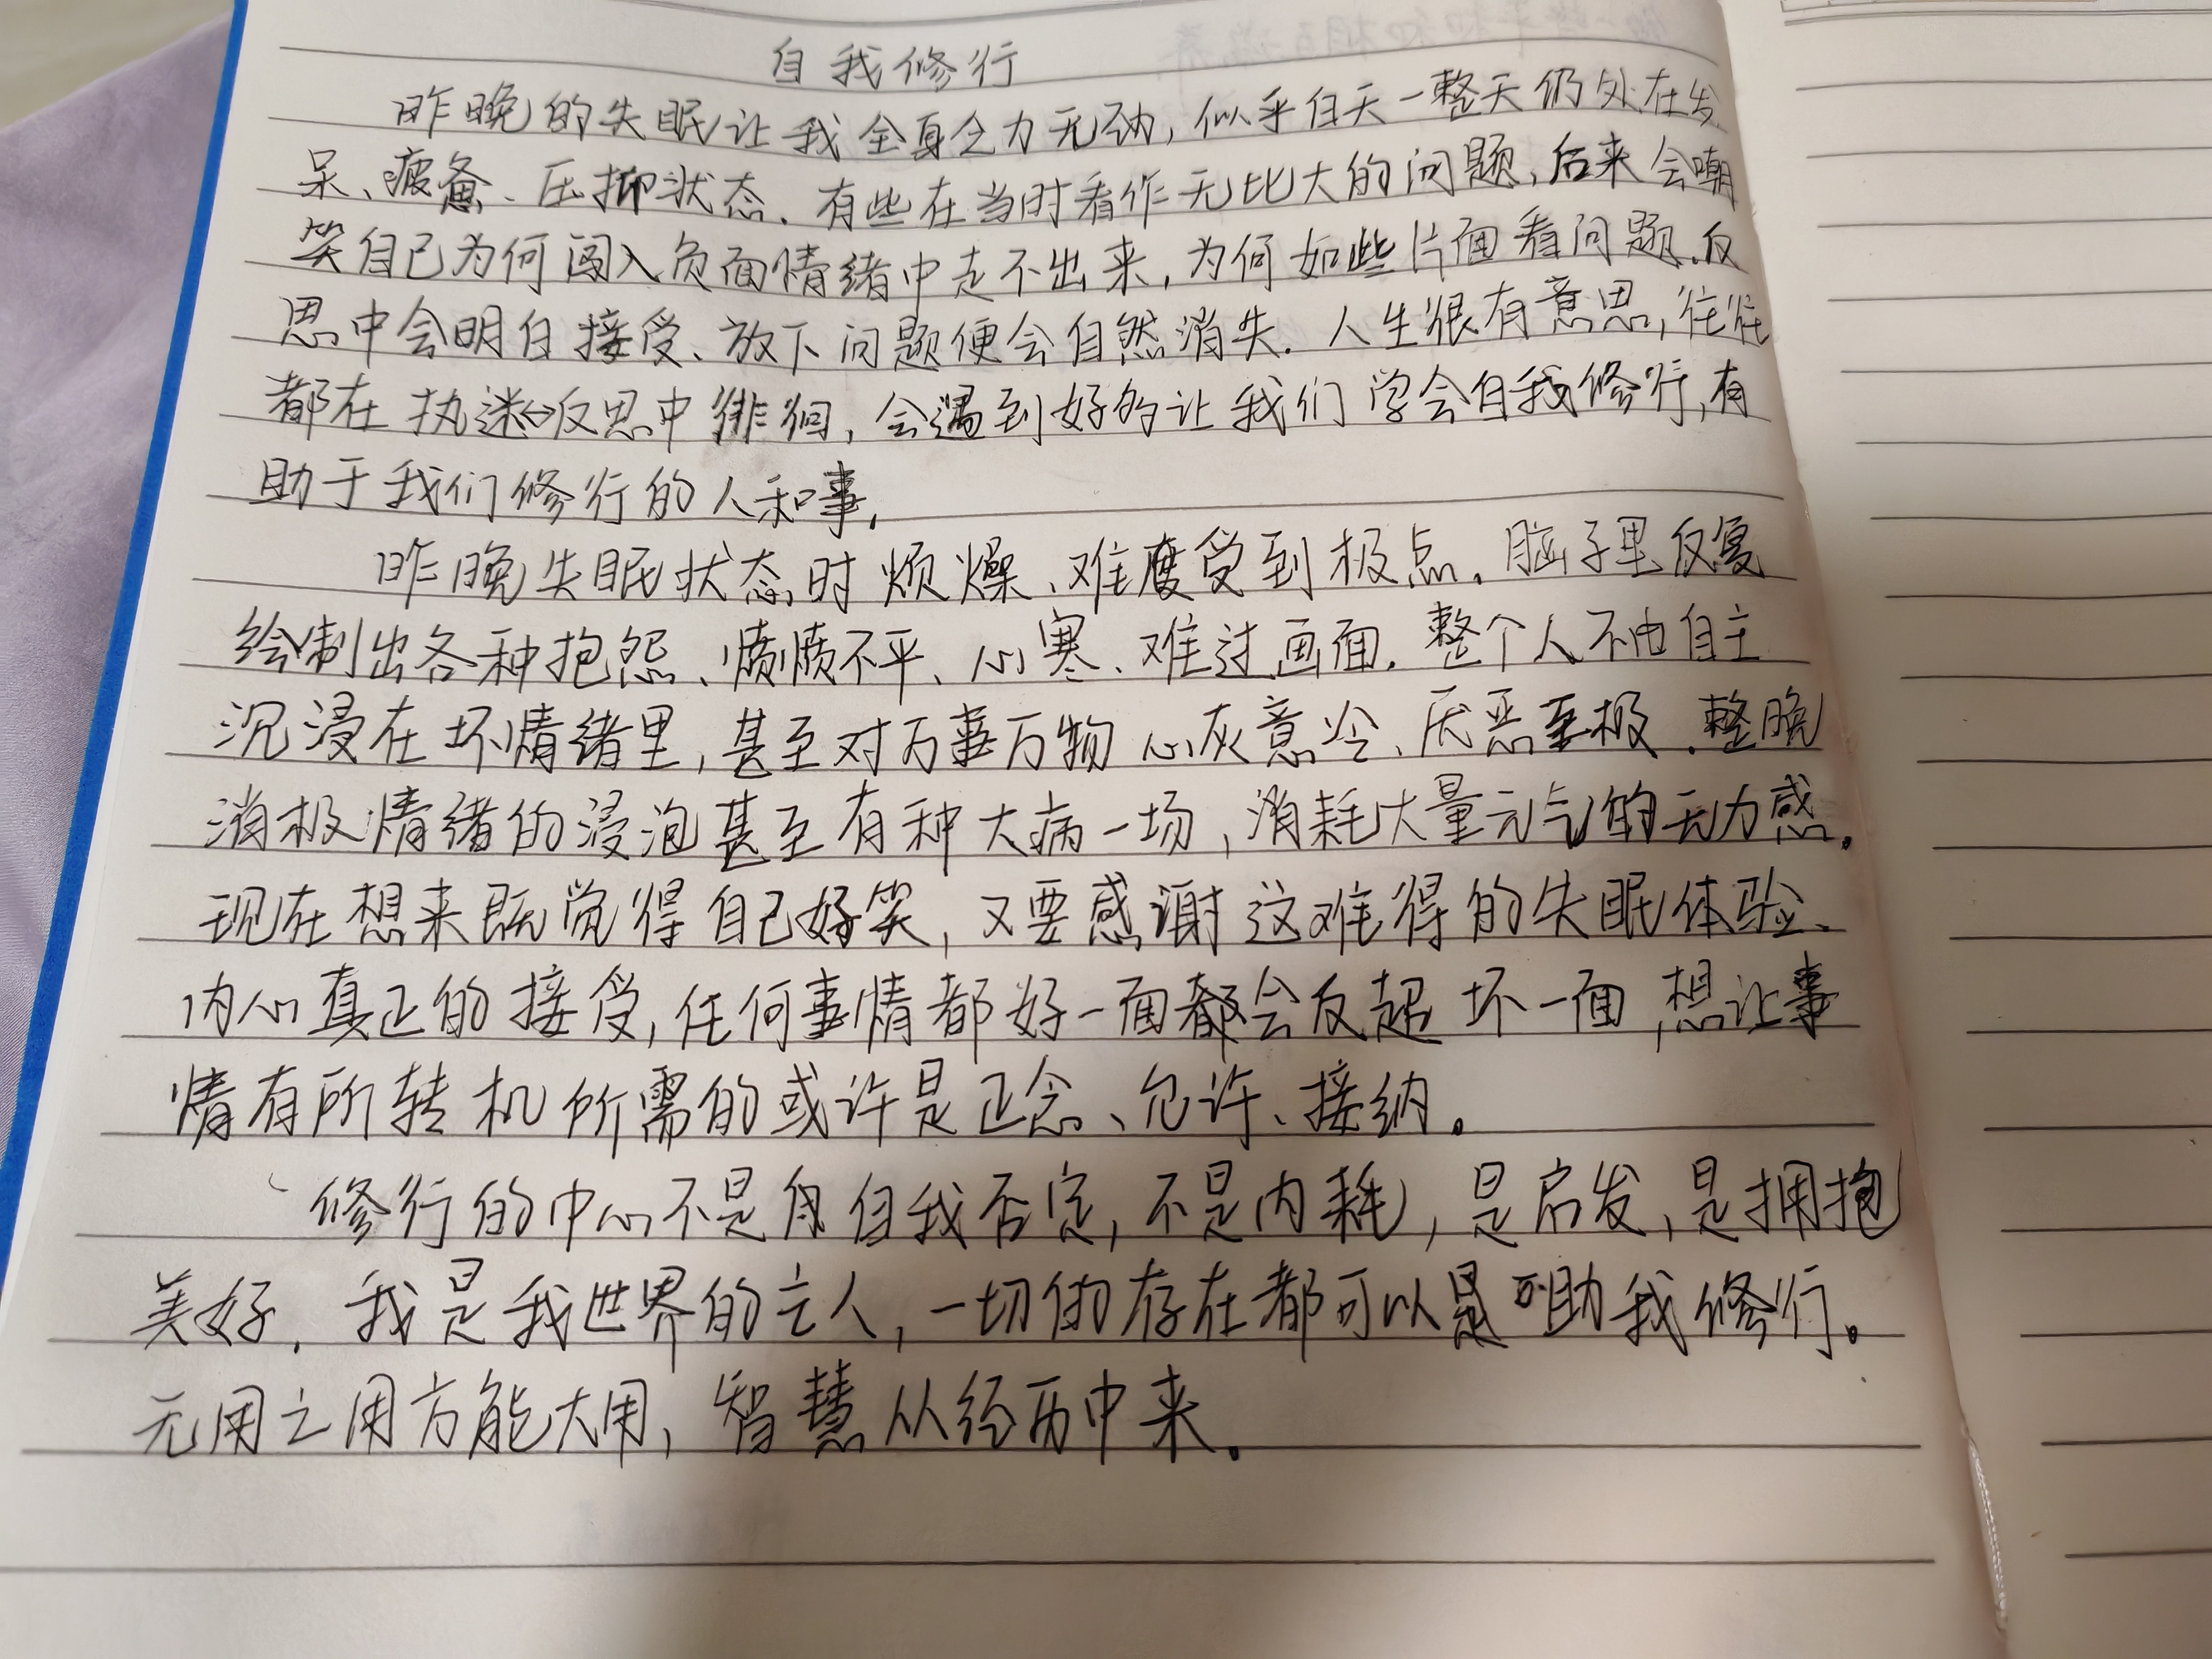 自我修行
昨晚的失眠让我全身乏力无劲，似乎白天一整天仍处在发
呆、疲惫、压抑状态。有些在当时看作无比大的问题，后来会嘲
笑自己为何闯入负面情绪中走不出来，为何如些片面看问题。反
思中会明白接受、放下问题便会自然消失。人生很有意思，往往
都在执迷⇔反思中徘徊，会遇到好的让我们学会自我修行，有
助于我们修行的人和事。
昨晚失眠状态时烦燥、难度受到极点。脑子里反复
绘制出各种抱怨、愤愤不平、心寒、难过画面。整个人不由自主
沉浸在坏情绪里，甚至对万事万物心灰意冷、厌恶至极。整晚
消极情绪的浸泡甚至有种大病一场，消耗大量元气的无力感。
现在想来既觉得自己好笑，又要感谢这难得的失眠体验、
内心真正的接受，任何事情都好一面都会反超坏一面，想让事
情有所转机所需的或许是正念、允许、接纳。
修行的中心不是自我否定，不是内耗，是启发，是拥抱
美好。我是我世界的主人，一切的存在都可以是助我修行。
无用之用方能大用，智慧从经历中来。